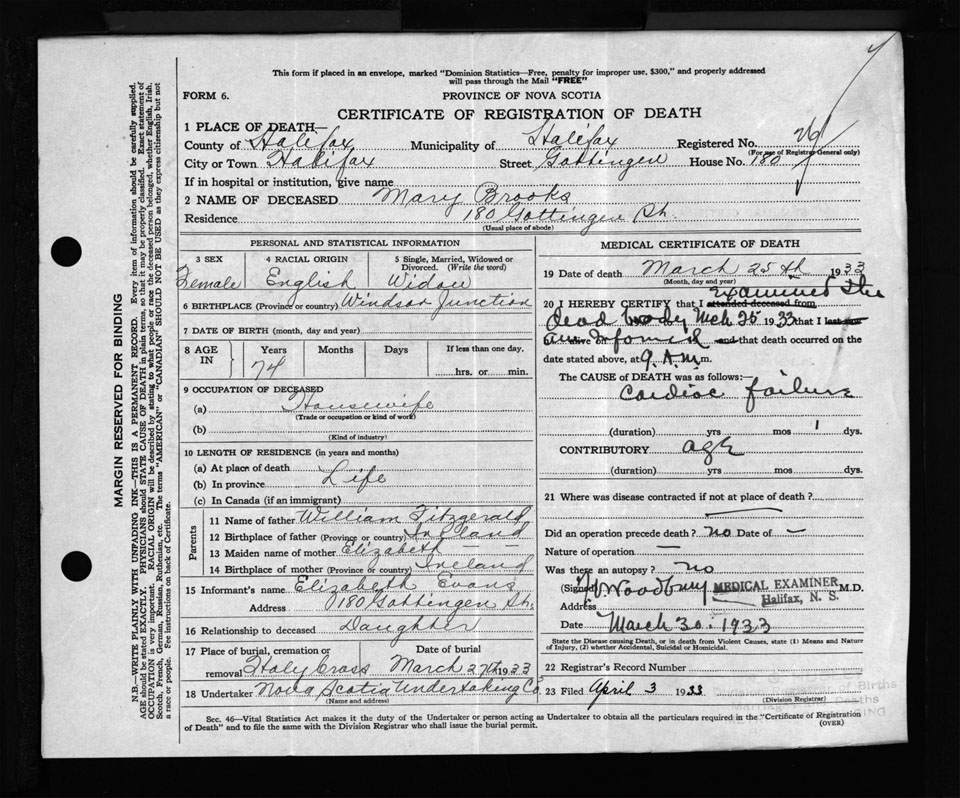 This form if placed in an envelope, marked "Dominion Statistics—Free, penalty for improper use, $300," and properly addressed
will pass through the Mail "FREE"
FORM 6.
PROVINCE OF NOVA SCOTIA
CERTIFICATE OF REGISTRATION OF DEATH
1 PLACE OF DEATH—
County of Halifax Municipality of Halifax Registered No.
(For use of Registrar General only)
City or Town Halifax Street Gottingen House No. 180
If in hospital or institution, give name
2 NAME OF DECEASED Mary Brooks
Residence 180 Gottingen St.
(Usual place of abode)
PERSONAL AND STATISTICAL INFORMATION
3 SEX 4 RACIAL ORIGIN 5 Single, Married, Widowed or
Divorced. (Write the word)
Female English Widow
6 BIRTHPLACE (Province or country) Windsor Junction
7 DATE OF BIRTH (month, day and year)
8 AGE IN Years Months Days If less than one day,
74 hrs. or min.
9 OCCUPATION OF DECEASED
(a) Housewife
(Trade or occupation or kind of work)
(b)
(Kind of industry)
10 LENGTH OF RESIDENCE (in years and months)
(a) At place of death
(b) In province Life
(c) In Canada (if an immigrant)
Parents
11 Name of father William Fitzgerald
12 Birthplace of father (Province or country) Ireland
13 Maiden name of mother Elizabeth — —
14 Birthplace of mother (Province or country) Ireland
15 Informant's name Elizabeth Evans
Address 180 Gottingen St.
16 Relationship to deceased Daughter
17 Place of burial, cremation or Date of burial
removal Holy Cross March 27th 1933
18 Undertaker Nova Scotia Undertaking Co.
(Name and address)
MEDICAL CERTIFICATE OF DEATH
19 Date of death March 25th 1933
(Month, day and year)
20 I HEREBY CERTIFY that I attended deceased from examined the
dead body Mch 25 1933 that I last saw
alive on am informed and that death occurred on the
date stated above, at 9. A.M. m.
The CAUSE of DEATH was as follows:—
Cardiac failure
(duration) yrs mos 1 dys.
CONTRIBUTORY age
(duration) yrs mos dys.
21 Where was disease contracted if not at place of death?
Did an operation precede death? no Date of —
Nature of operation —
Was there an autopsy? no
(Signed) Woodbury MEDICAL EXAMINER M.D.
Halifax, N. S.
Address
Date March 30. 1933
State the Disease causing Death, or in death from Violent Causes, state (1) Means and Nature
of Injury, (2) whether Accidental, Suicidal or Homicidal.
22 Registrar's Record Number
23 Filed April 3 1933
(Division Registrar)
Sec. 46—Vital Statistics Act makes it the duty of the Undertaker or person acting as Undertaker to obtain all the particulars required in the "Certificate of Registration
of Death" and to file the same with the Division Registrar who shall issue the burial permit.
(OVER)
MARGIN RESERVED FOR BINDING
N.B.—WRITE PLAINLY WITH UNFADING INK—THIS IS A PERMANENT RECORD. Every item of information should be carefully supplied.
AGE should be stated EXACTLY. PHYSICIANS should STATE CAUSE OF DEATH in plain terms, so that it may be properly classified. Exact statement of
OCCUPATION is very important. RACIAL ORIGIN will be described by stating to what people or race the deceased person belonged, whether English, Irish,
Scotch, French, German, Russian, Ruthenian, etc. The terms "AMERICAN" or "CANADIAN" SHOULD NOT BE USED as they express citizenship but not
a race or people. See instructions on back of Certificate.